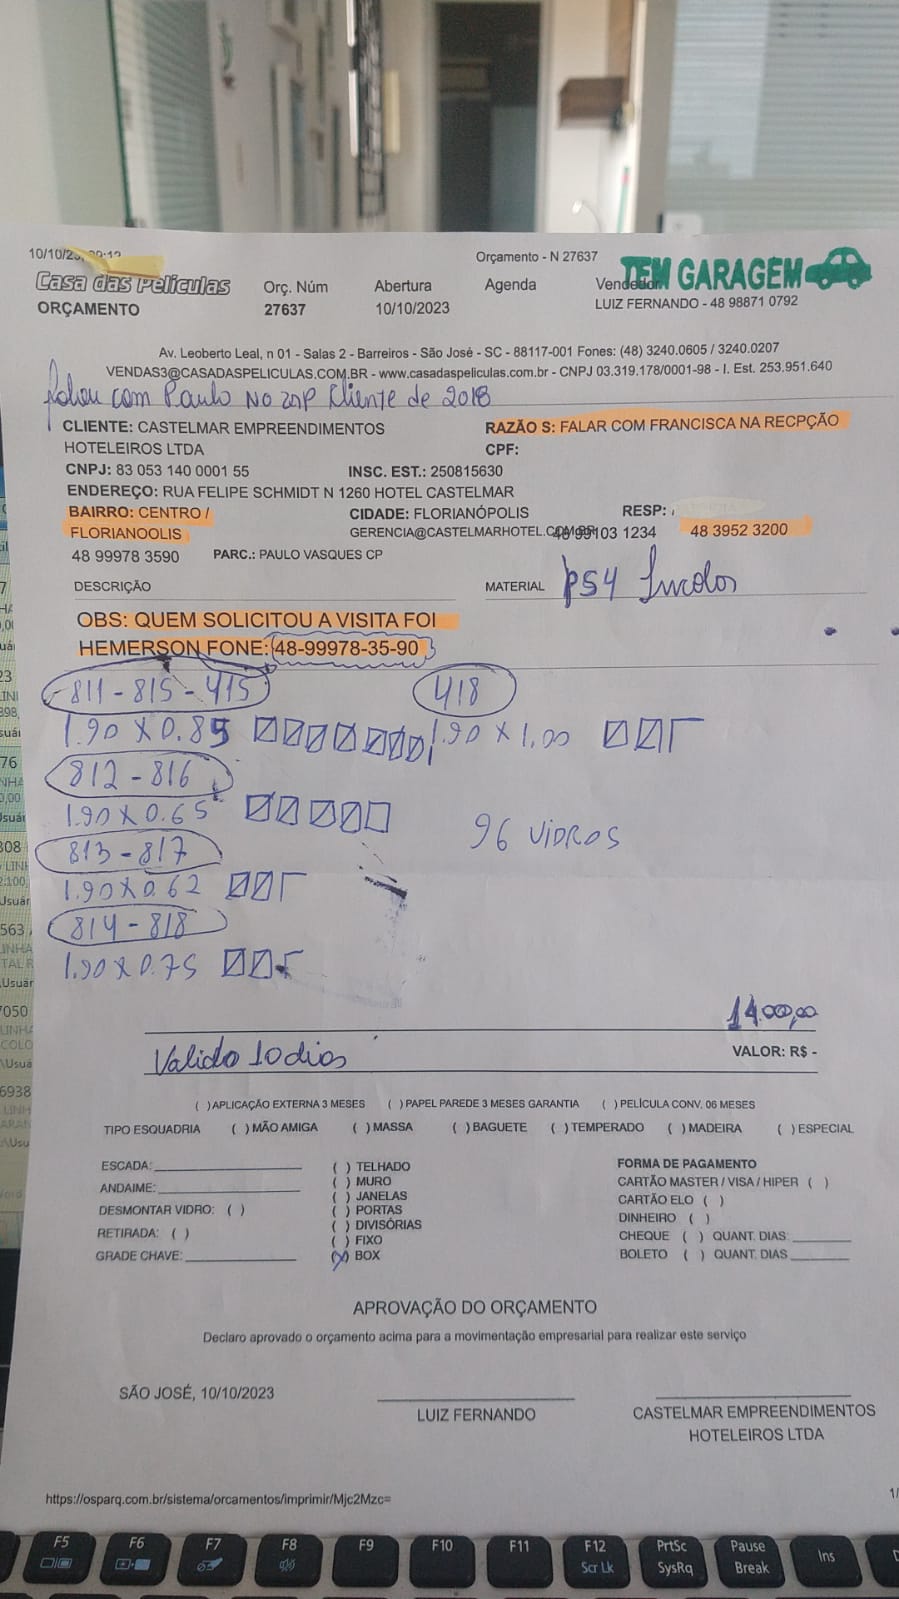 10/10/23, 09:12
Orçamento - N 27637
TEM GARAGEM
Casa das Películas
ORÇAMENTO
Orç. Núm
27637
Abertura
10/10/2023
Agenda
Vendedor
LUIZ FERNANDO - 48 98871 0792
Av. Leoberto Leal, n 01 - Salas 2 - Barreiros - São José - SC - 88117-001 Fones: (48) 3240.0605 / 3240.0207
VENDAS3@CASADASPELICULAS.COM.BR - www.casadaspeliculas.com.br - CNPJ 03.319.178/0001-98 - I. Est. 253.951.640
falou com Paulo No zap Cliente de 2018
CLIENTE: CASTELMAR EMPREENDIMENTOS
HOTELEIROS LTDA
RAZÃO S: FALAR COM FRANCISCA NA RECPÇÃO
CPF:
CNPJ: 83 053 140 0001 55
INSC. EST.: 250815630
ENDEREÇO: RUA FELIPE SCHMIDT N 1260 HOTEL CASTELMAR
BAIRRO: CENTRO /
FLORIANOOLIS
CIDADE: FLORIANÓPOLIS
RESP:
GERENCIA@CASTELMARHOTEL.COM.BR
48 99103 1234
48 3952 3200
48 99978 3590
PARC.: PAULO VASQUES CP
DESCRIÇÃO
MATERIAL PS4 Incolor
OBS: QUEM SOLICITOU A VISITA FOI
HEMERSON FONE: 48-99978-35-90
811 - 815 - 415
418
1.90 X 0.85
1.90 X 1.00
812 - 816
1.90 X 0.65
96 VIDROS
813 - 817
1.90 X 0.62
814 - 818
1.90 X 0.75
14.000,00
Valido 10 dias
VALOR: R$ -
( )APLICAÇÃO EXTERNA 3 MESES ( )PAPEL PAREDE 3 MESES GARANTIA ( )PELÍCULA CONV. 06 MESES
TIPO ESQUADRIA ( )MÃO AMIGA ( )MASSA ( )BAGUETE ( )TEMPERADO ( )MADEIRA ( )ESPECIAL
ESCADA:
ANDAIME:
DESMONTAR VIDRO: ( )
RETIRADA: ( )
GRADE CHAVE:
( ) TELHADO
( ) MURO
( ) JANELAS
( ) PORTAS
( ) DIVISÓRIAS
( ) FIXO
(X) BOX
FORMA DE PAGAMENTO
CARTÃO MASTER / VISA / HIPER ( )
CARTÃO ELO ( )
DINHEIRO ( )
CHEQUE ( ) QUANT. DIAS:
BOLETO ( ) QUANT. DIAS
APROVAÇÃO DO ORÇAMENTO
Declaro aprovado o orçamento acima para a movimentação empresarial para realizar este serviço
SÃO JOSÉ, 10/10/2023
LUIZ FERNANDO
CASTELMAR EMPREENDIMENTOS
HOTELEIROS LTDA
https://osparq.com.br/sistema/orcamentos/imprimir/Mjc2Mzc=
1/
F5 F6 F7 F8 F9 F10 F11 F12 PrtSc Pause Ins
Scr Lk SysRq Break